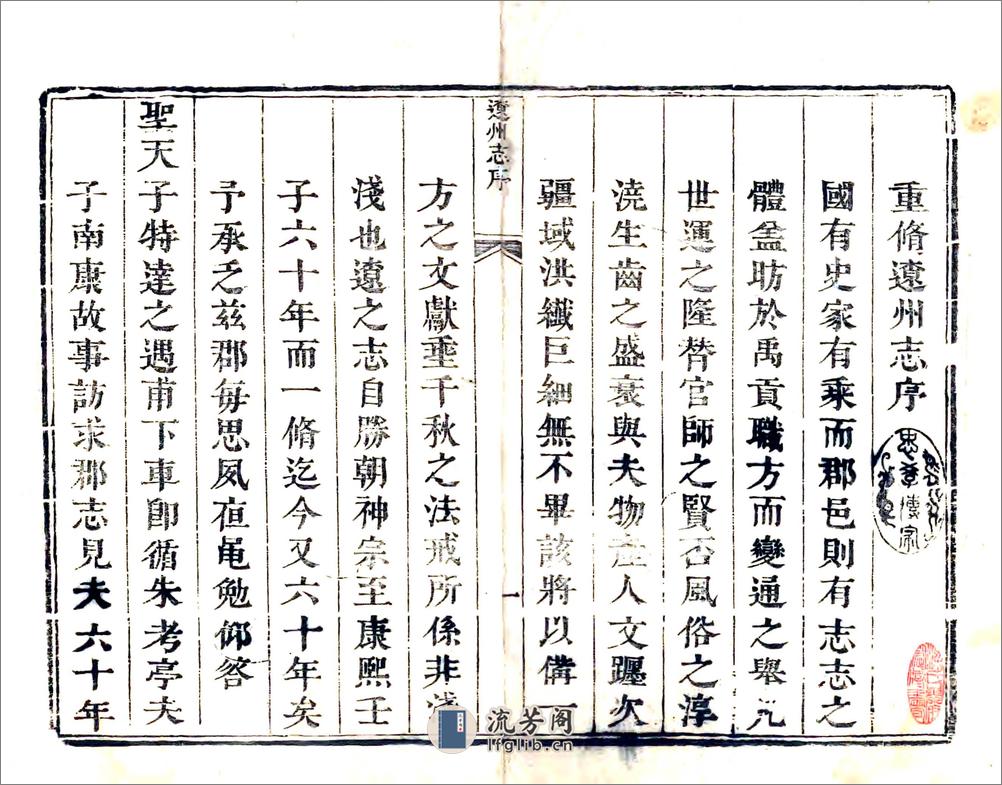 重脩遼州志序
國有史家有乘而郡邑則有志志之
體葢昉於禹貢職方而變通之舉凡
世運之隆替官師之賢否風俗之淳
澆生齒之盛衰與夫物產人文躔次
疆域洪纖巨細無不畢該將以備一
遼州志序
一
方之文獻垂千秋之法戒所係非淺
淺也遼之志自勝朝神宗至康熙壬
子六十年而一脩迄今又六十年矣
予承乏茲郡每思夙夜黽勉仰答
聖天子特達之遇甫下車卽循朱考亭夫
子南康故事訪求郡志見夫六十年
忠孝傳家
流芳阁
lfglib.cn